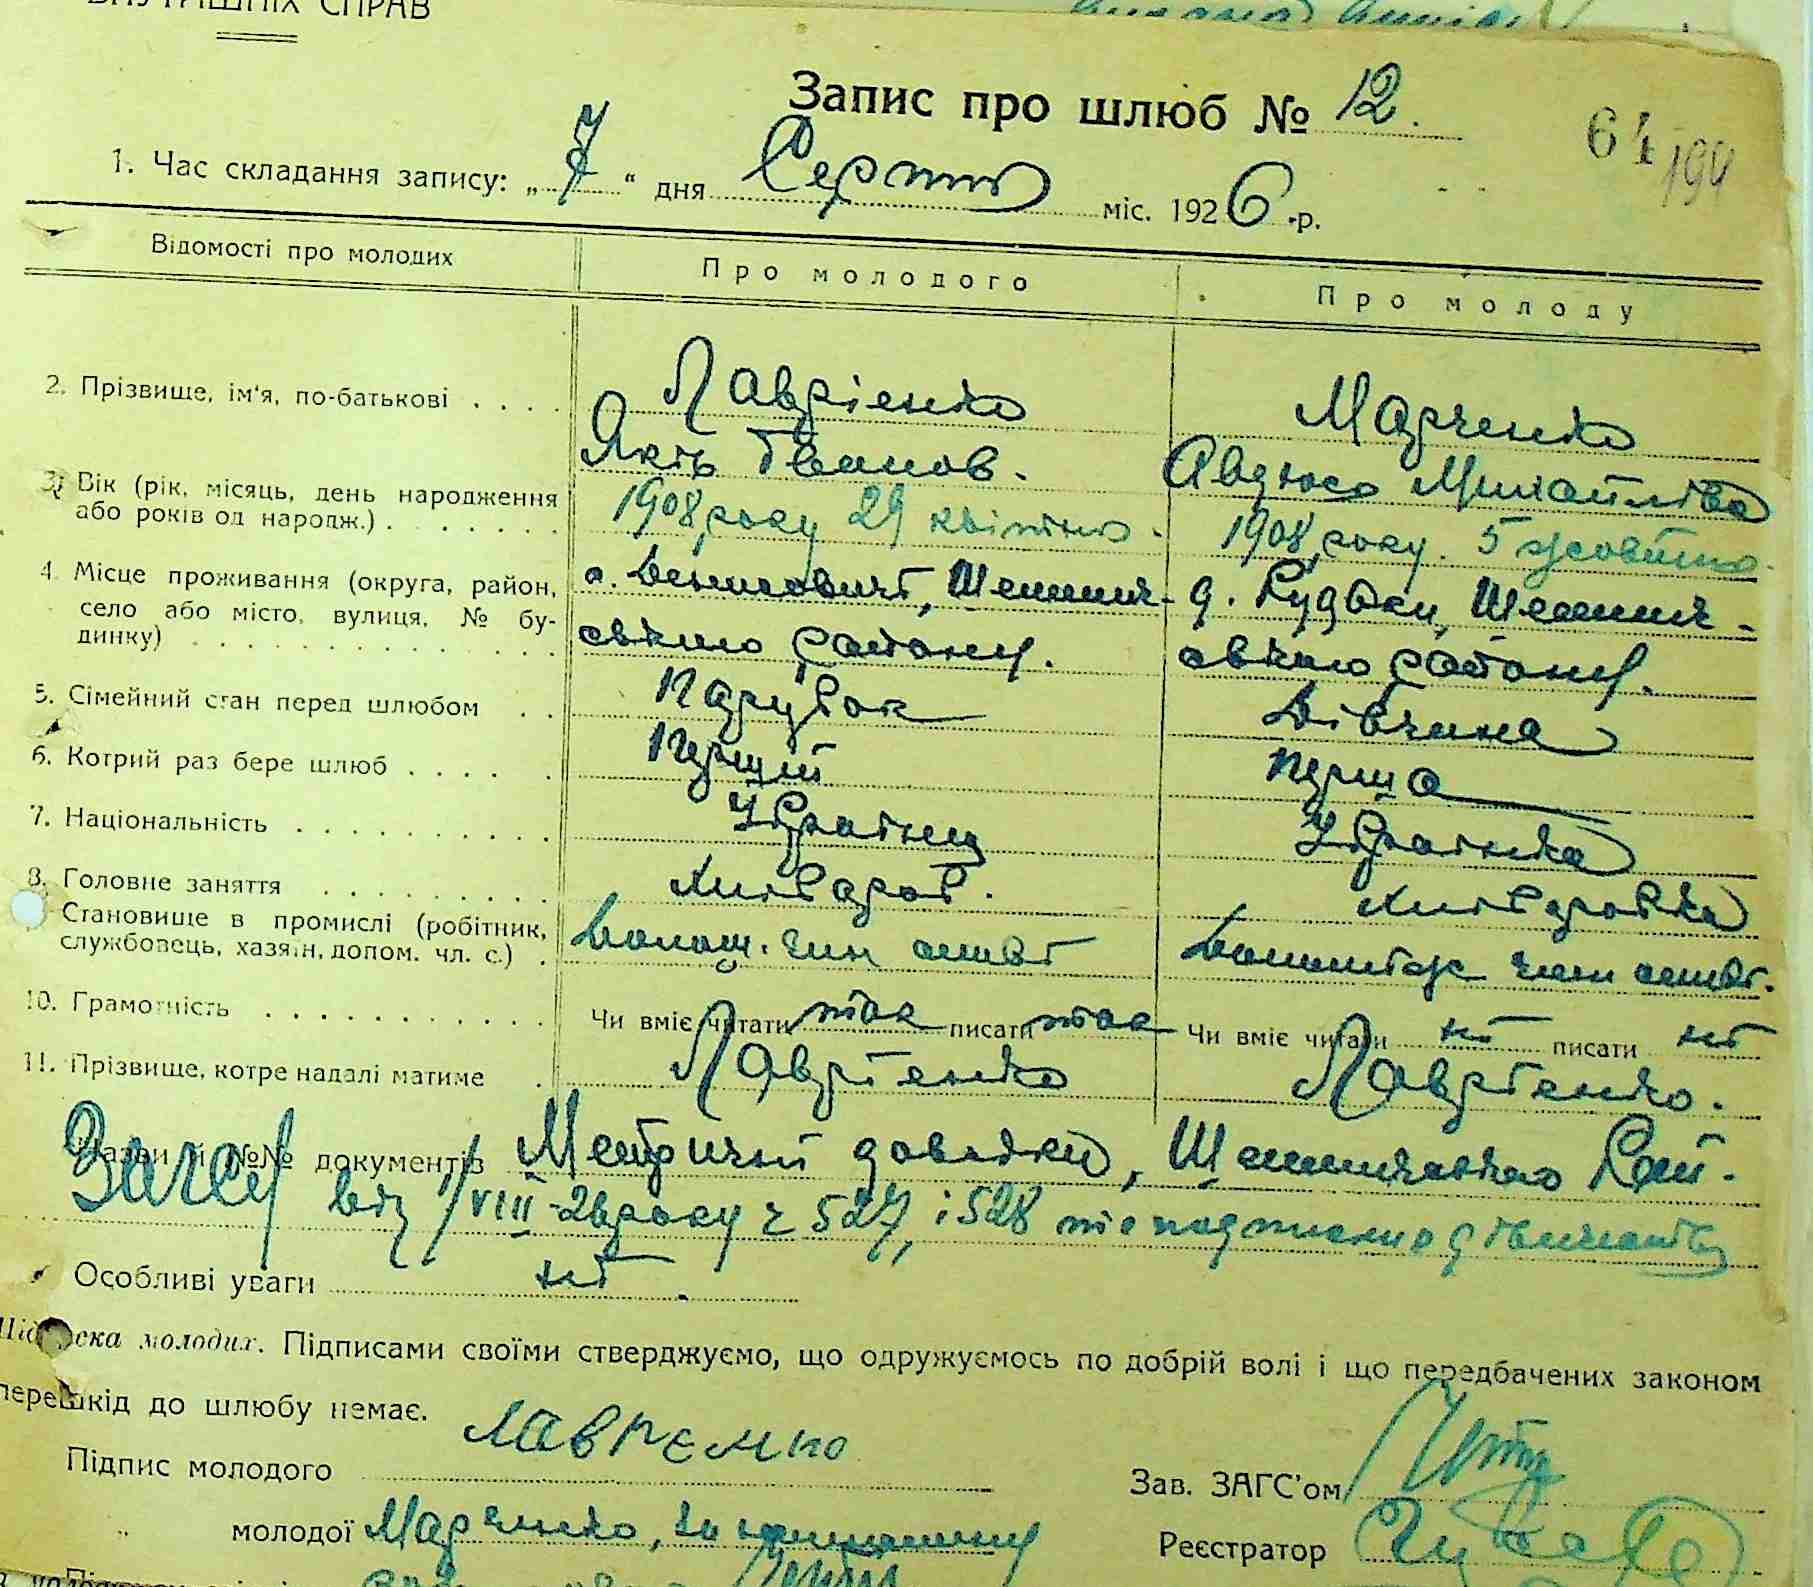 ВНУТРІШНІХ СПРАВ
Запис про шлюб № 12.
64 194
1. Час складання запису: „ 7 “ дня Серпня міс. 1926 р.
Відомості про молодих Про молодого Про молоду
2. Прізвище, ім'я, по-батькові . . . . Лаврієнко Марченко
Яків Іванов. Авдюся Михайлівна
3. Вік (рік, місяць, день народження 1908 року 29 квітня. 1908 року. 5 жовтня.
або років од нарож.) . . . . . . .
4. Місце проживання (округа, район, с. Денисовичі, Шепелич- д. Рудьки, Шепелич-
село або місто, вулиця, № бу- евського району. евського району.
динку) . . . . . . . . . . . . . .
5. Сімейний стан перед шлюбом . . Парубок Дівчина
6. Котрий раз бере шлюб . . . . . Перший Перша
7. Національність . . . . . . . . . . Українец Українка
8. Головне заняття . . . . . . . . Хлібороб. Хліборобка
Становище в промислі (робітник,
службовець, хазяїн, допом. чл. с.) . Допом. член сімьї Допомогає член сімьї.
10. Грамотність . . . . . . . . . . . Чи вміє читати так писати так Чи вміє читати ні писати ні
11. Прізвище, котре надалі матиме . Лаврієнко Лаврієнко.
Назви й №№ документів Метричні довідки, Шепеличського Рай.
Загсу від 1/VIII-26 року ч 527, і 528 та подписка
Особливі уваги ні.
Підписка молодих. Підписами своїми стверджуємо, що одружуємось по добрій волі і що передбачених законом
перешкід до шлюбу немає.
Підпис молодого Лаврієнко Зав. ЗАГС'ом
„ молодої Марченко, за неписьменну
Реєстратор